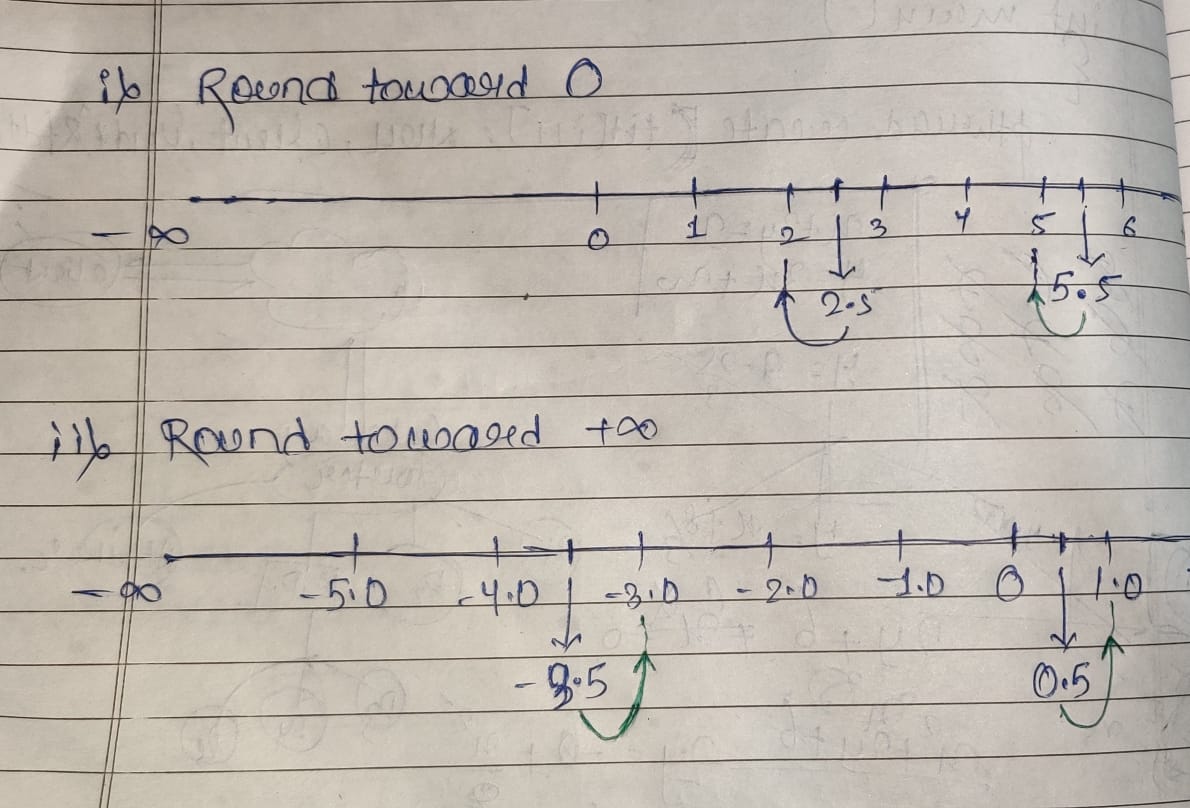 i) Round toward 0
-∞ 0 1 2 3 4 5 6
2.5 5.5
ii) Round toward +∞
-∞ -5.0 -4.0 -3.0 -2.0 -1.0 0 1.0
-3.5 0.5